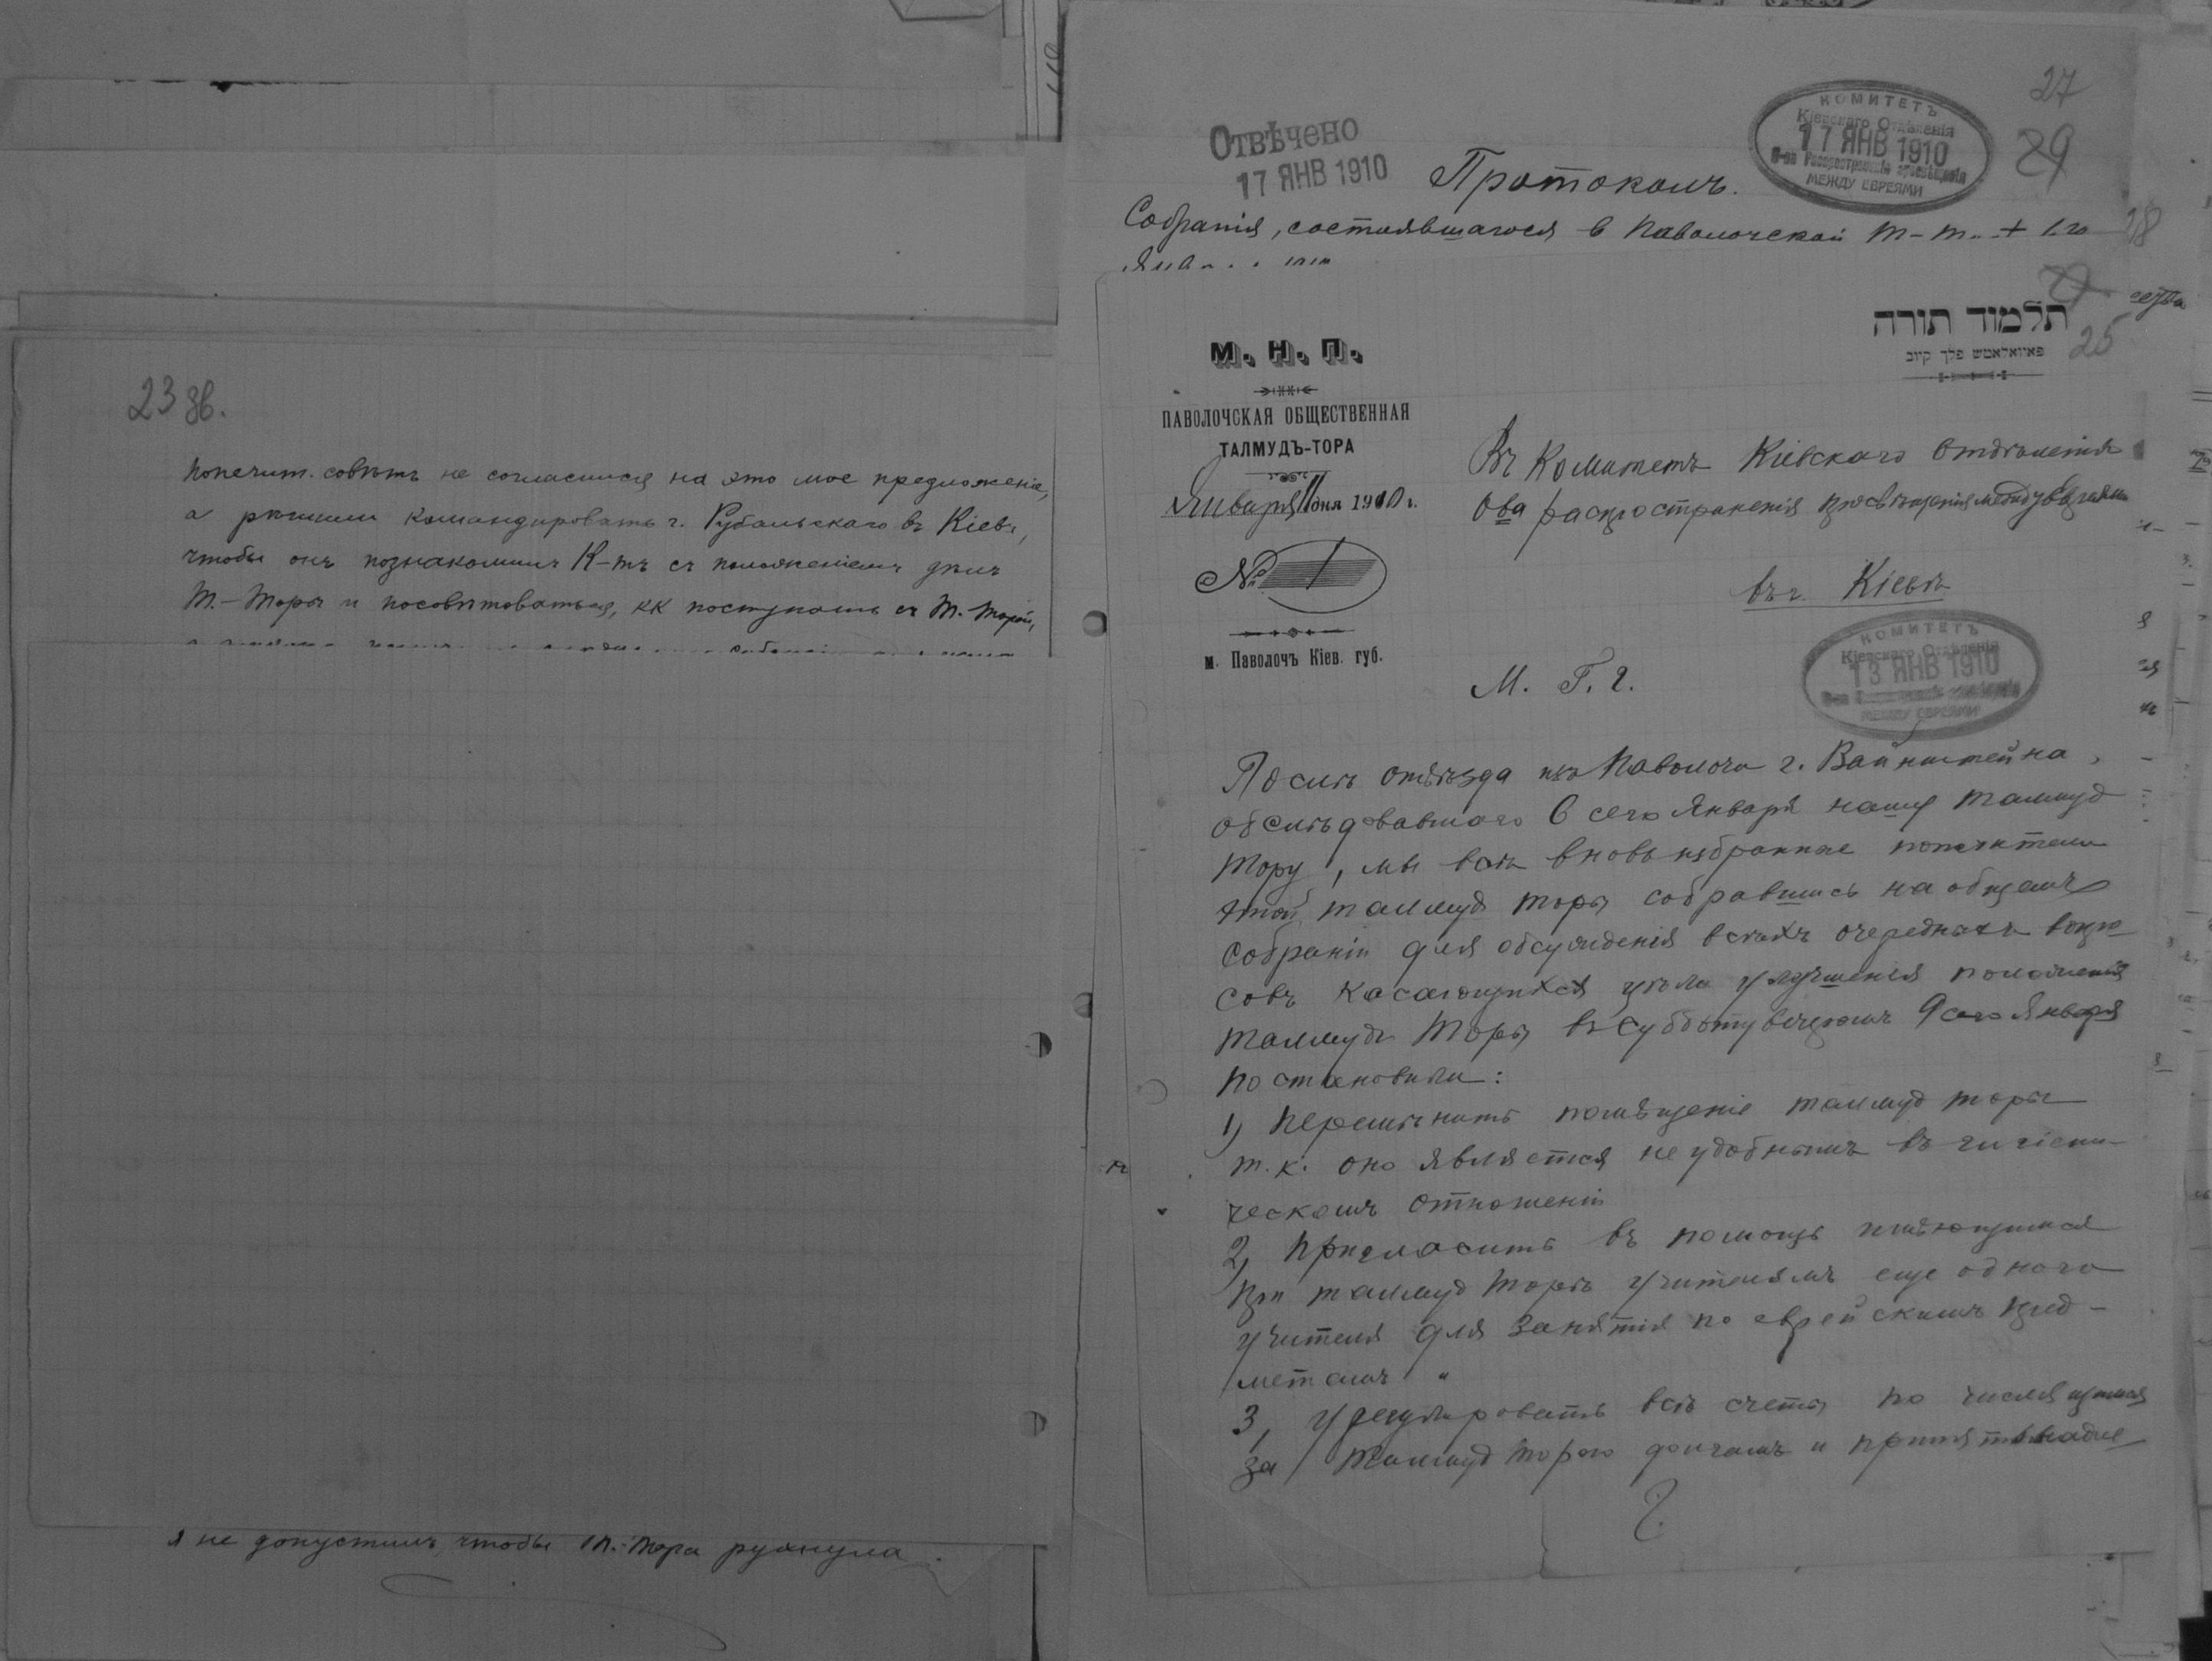 23 зв.
Попечит. совѣтъ не согласился на это мое предложеніе,
а рѣшили командировать г. Рубальскаго въ Кіевъ,
чтобы онъ познакомилъ К-тъ съ положеніемъ дѣлъ
Т.-Торы и посовѣтоваться, кк поступать съ Т.-Торой,
я не допустилъ, чтобы Т.-Тора рухнула.
Отвѣчено
17 ЯНВ 1910
КОМИТЕТЪ
Кіевскаго Отдѣленія
17 ЯНВ 1910
О-ва Распространенія просвѣщенія
МЕЖДУ ЕВРЕЯМИ
27
29
Протоколъ.
Собранія, состоявшагося в Паволочской Т-Т.
28
М. Н. П.
ПАВОЛОЧСКАЯ ОБЩЕСТВЕННАЯ
ТАЛМУДЪ-ТОРА
Января 11 дня 1910 г.
№ 1
м. Паволочъ Кіев. губ.
תלמוד תורה
פאוואלאטש פלך קיוב
25
Въ Комитетъ Кіевскаго Отдѣленія
О-ва распространенія просвѣщенія между Евреями
въ г. Кіевѣ
КОМИТЕТЪ
Кіевскаго Отдѣленія
13 ЯНВ 1910
МЕЖДУ ЕВРЕЯМИ
М. Г. г.
Послѣ отъѣзда изъ Паволочи г. Вайнштейна,
обслѣдовавшаго 6 сего Января нашу талмуд
тору, мы всѣ вновь избранные попечители
этой талмуд торы собравшись на общемъ
собраніи для обсужденія всѣхъ очередныхъ вопро
совъ касающихся цѣли улучшенія положенія
талмудъ Торы въ субботу вечеромъ 9 сего Января
постановили:
1) Перемѣнить помѣщеніе талмуд торы
т. к. оно является неудобнымъ въ гигіени-
ческомъ отношеніи
2) Пригласить въ помощь имѣющимся
при талмуд торѣ учителямъ еще одного
учителя для занятія по еврейскимъ пред-
метамъ
3, урегулировать всѣ счеты по числящимся
за Талмуд Торою долгамъ и